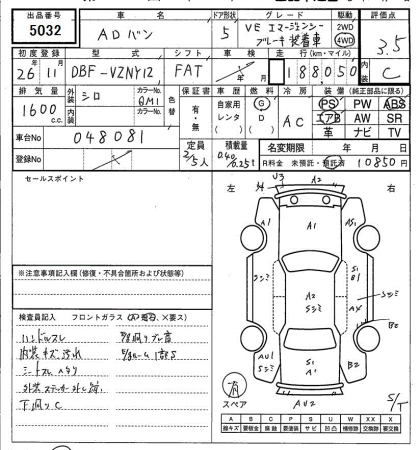 出品番号 車名 ドア形状 グレード 駆動 評価点
5032 ADバン 5 VE エマージェンシー ブレーキ装着車 2WD 4WD 3.5
初度登録 型式 シフト 車検 走行(km・マイル) 内装
26年 11月 DBF-VZNY12 FAT 188,050 C
排気量 外装 シロ カラーNo. QM1 色替 保証書 車歴 燃料 冷房 装備(純正部品に限る)
1600 c.c. 内装 カラーNo. 有・無 自家用 レンタ G D AC PS PW ABS
エアB AW SR
革 ナビ TV
車台No 048081 定員 2/5人 積載量 0.40/0.25t 名変期限 年 月 日
登録No R料金 未預託・預託済 10850円
セールスポイント
左 右
U3 A2
A1 A1 A1
S1 B1
A2 S1 AX
S1 A1 B2 B2
AU2
※注意事項記入欄(修復・不具合箇所および状態等)
検査員記入 フロントガラス
ハンドルスレ
内装キズ汚れ
シートスレ
下回りC
有 スペア
S/T
A B C P S U W X XX
線キズ 要板金 腐蝕 要塗装 サビ 凹凸 補修跡 要交換 交換済